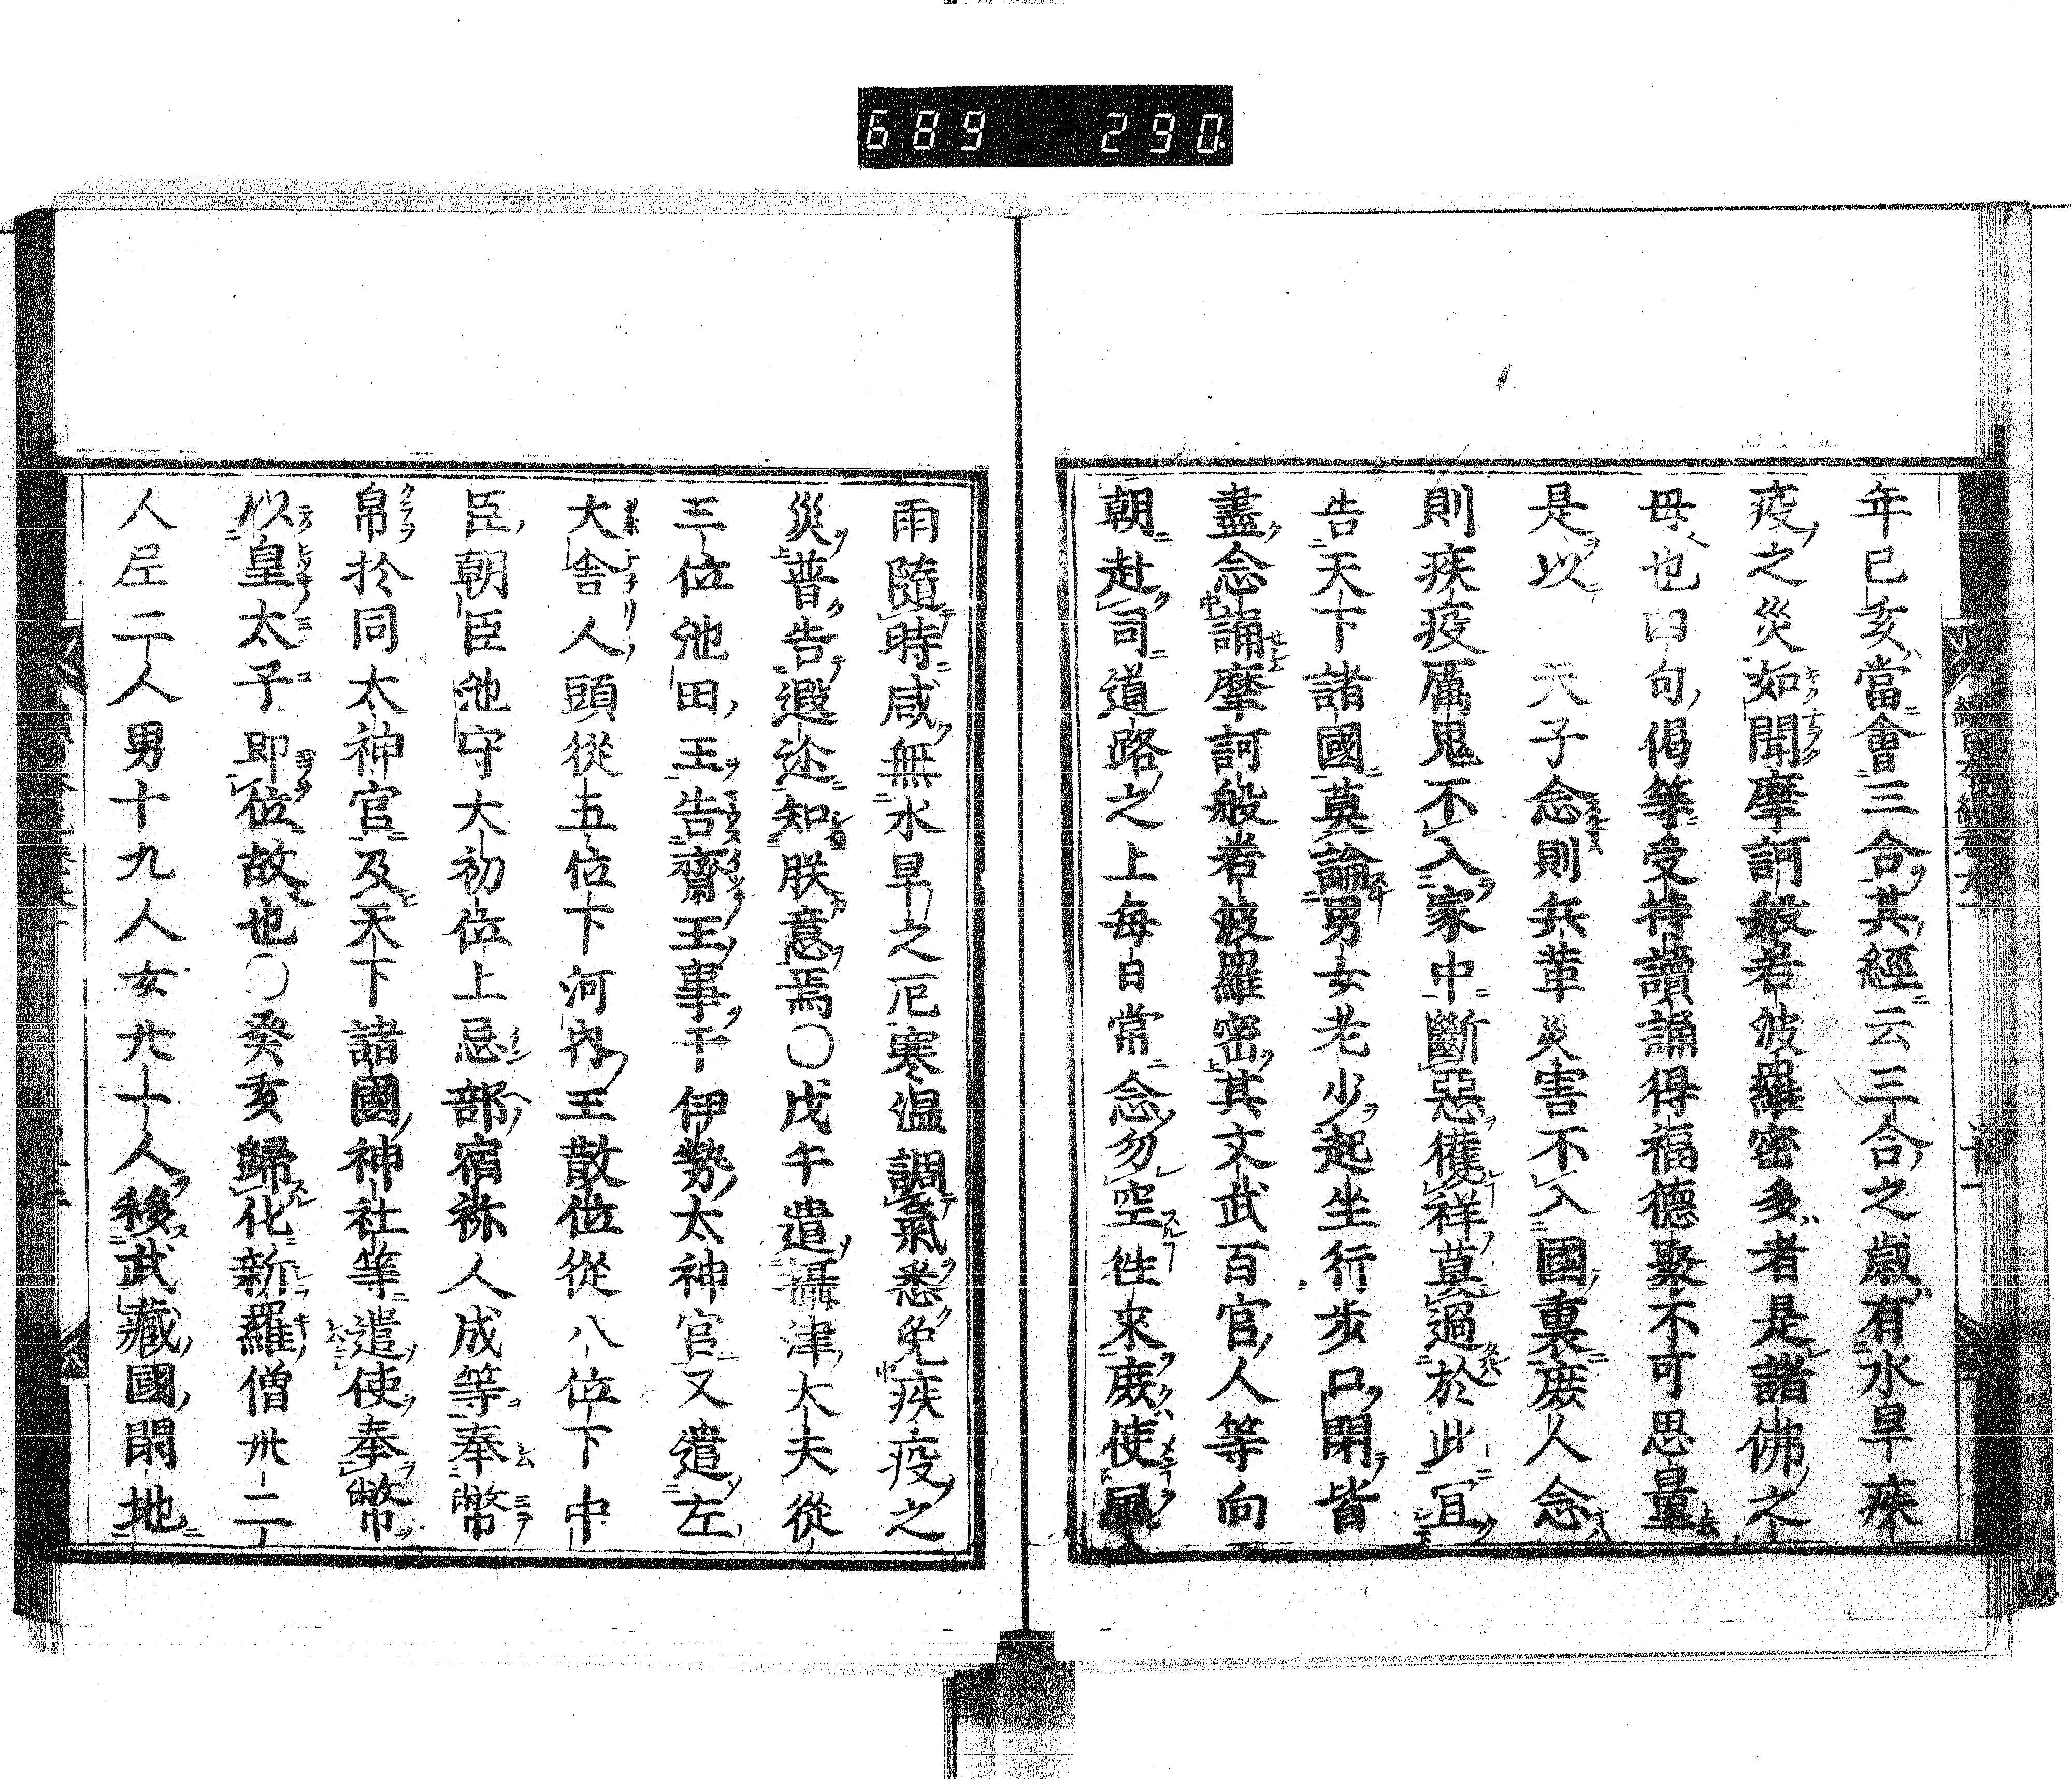 689 290
年已亥當會三合其經云三合之歳有水旱疾
疫之災如聞摩訶般若波羅密多者是諸佛之
母也四句偈等受持讀誦得福德聚不可思量
是以天子念則兵革災害不入國裏庶人念
則疾疫厲鬼不入家中斷惡獲祥莫過於此冝
告天下諸國莫論男女老少起坐行歩口閑皆
盡念誦摩訶般若波羅密其文武百官人等向
朝赴司道路之上每日常念勿空徃來庻使風
雨隨時咸無水旱之厄寒温調氣悉免疾疫之
災普告遐迩知朕意焉〇戊午遣攝津大夫從
三位池田王告齋王事于伊勢太神官又遣左
大舎人頭從五位下河内王散位從八位下中
臣朝臣池守大初位上忌部宿祢人成等奉幣
帛於同太神官及天下諸國神社等遣使奉幣
以皇太子即位故也〇癸亥歸化新羅僧卅二
人尼二人男十九人女廿一人移武藏國閑地